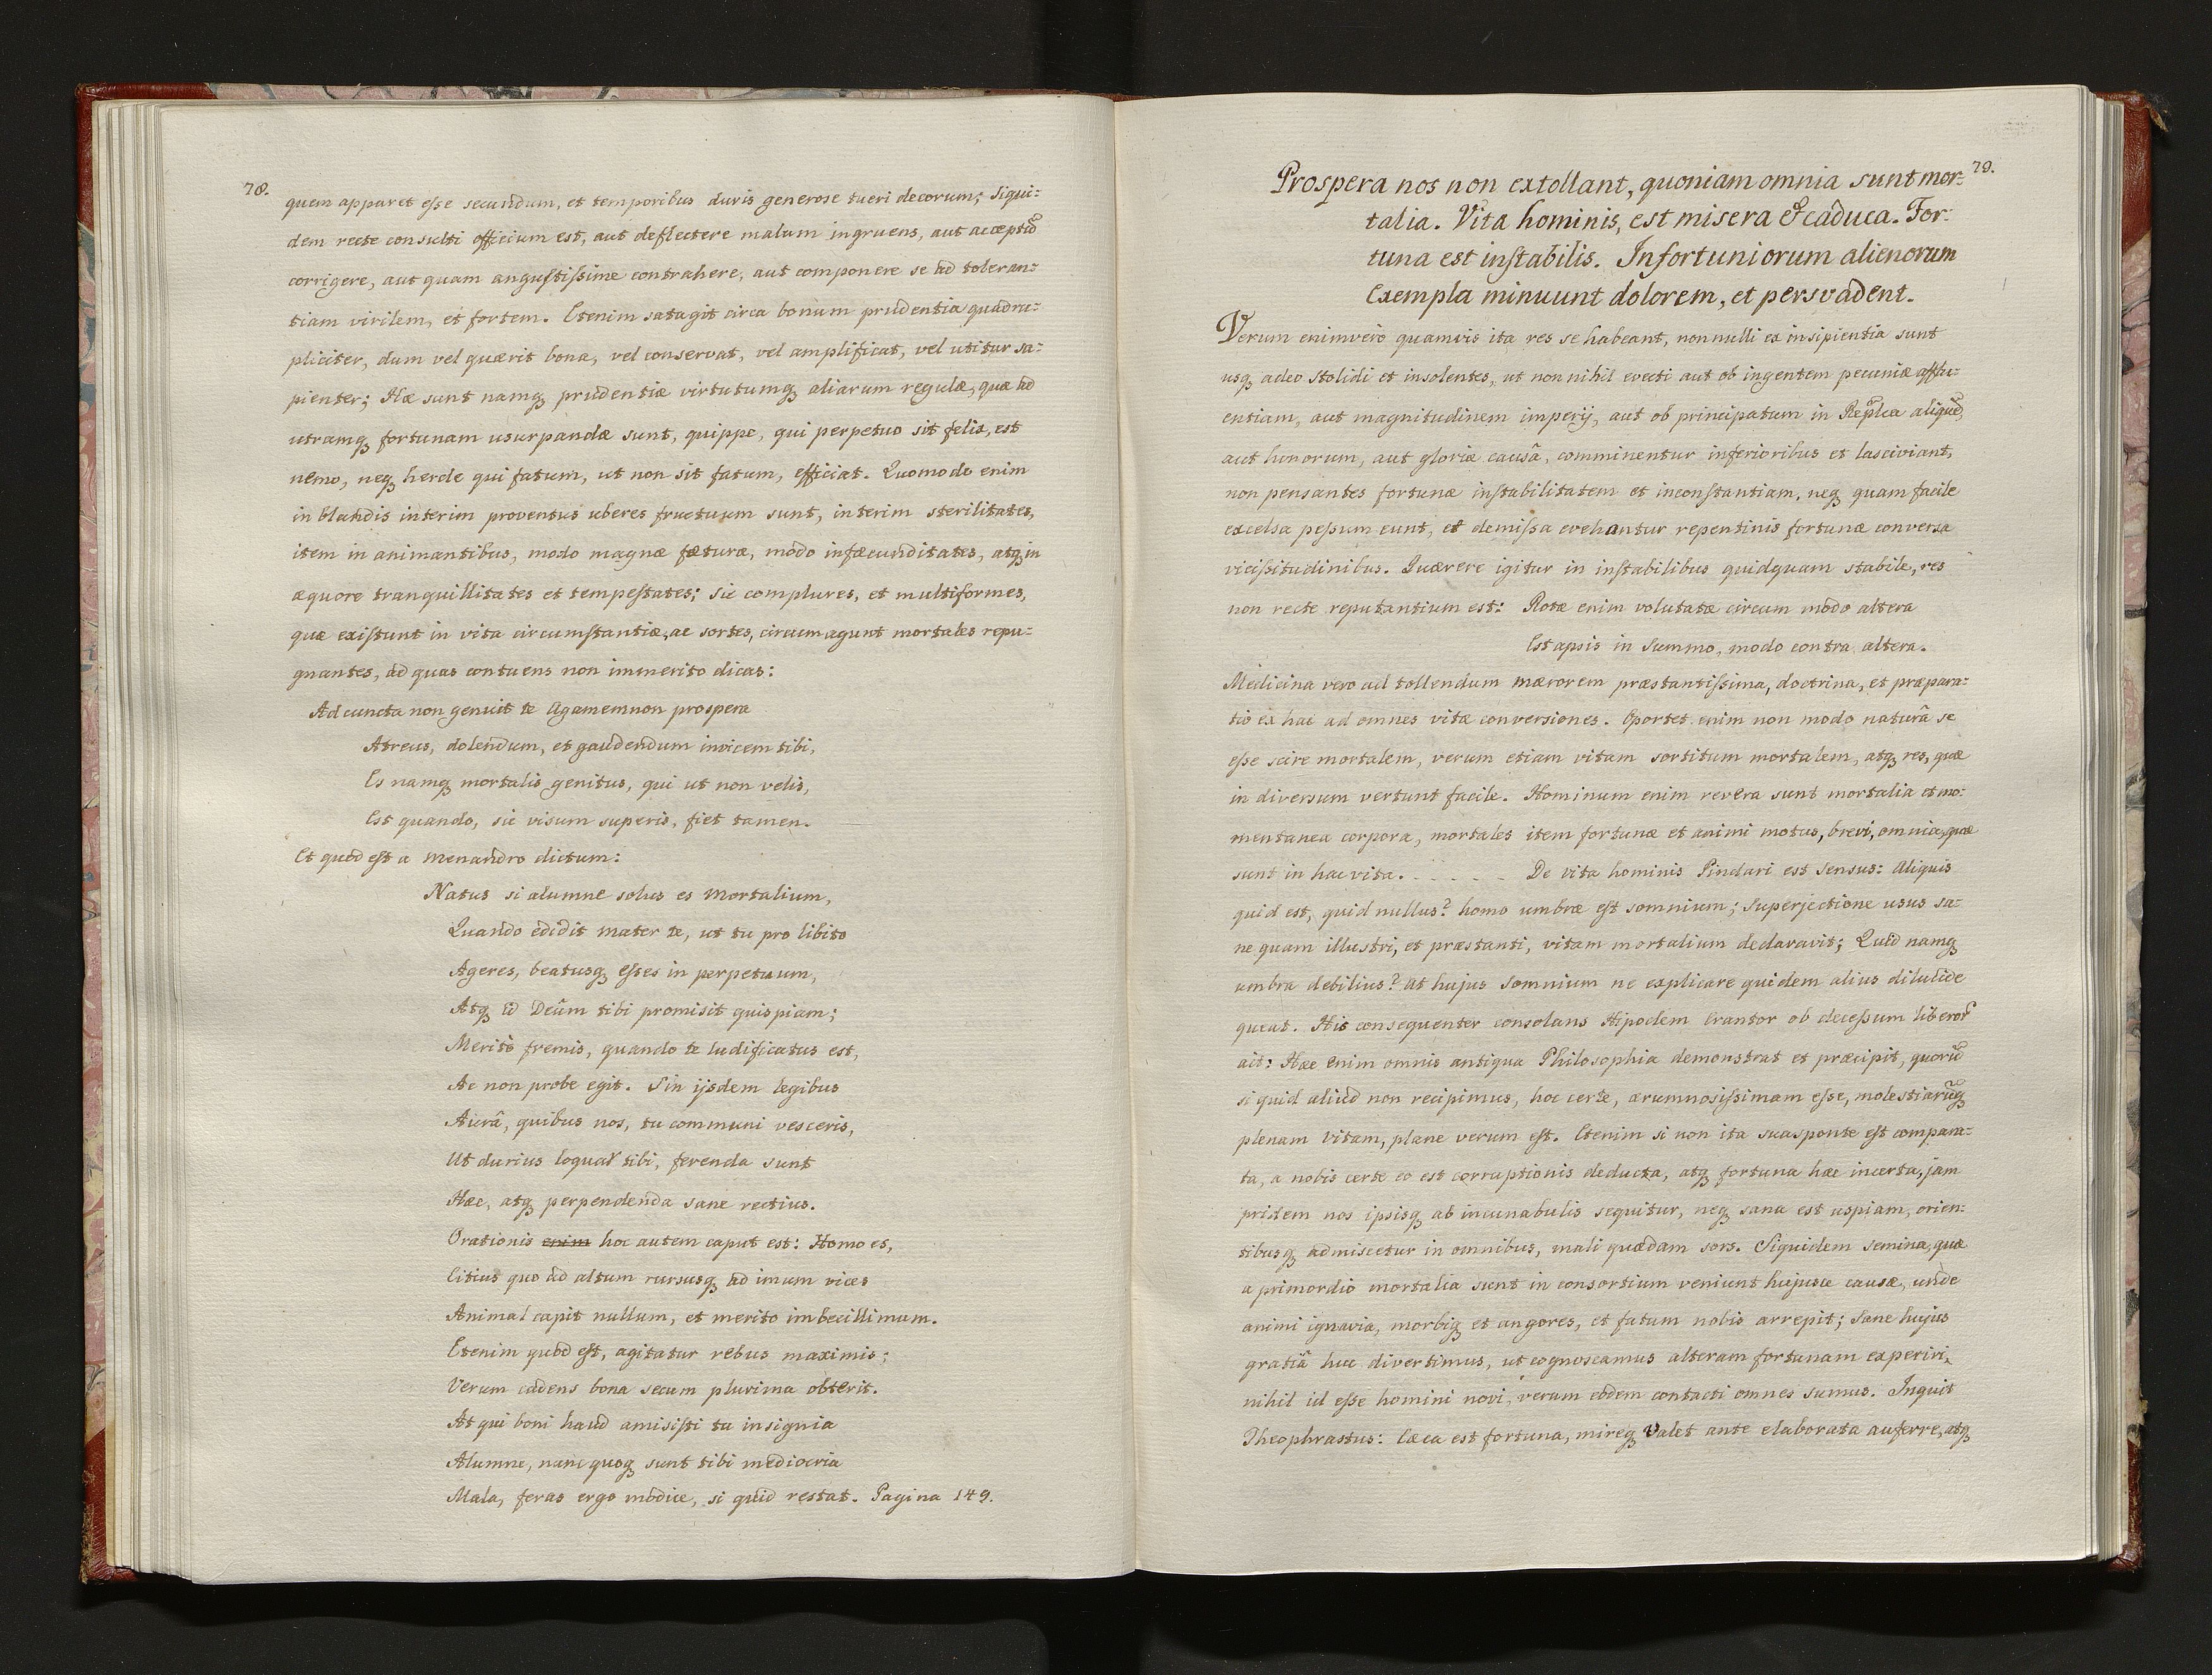 78.
quem apparet eſse secundum, et temporibus duris generose tueri decorum; Siqui:
dem recte consulti officium est, aut deflectere malum ingruens, aut acceptũ
corrigere, aut quam anguſtiſsime contrahere, aut componere se ad toleran:
tiam virilem, et fortem. Etenim satagit circa bonum prudentia quadru:
pliciter, dum vel quærit bona, vel conservat, vel amplificat, vel utitur sa:
pienter; Hæ sunt namq; prudentiæ virtutumq; aliarum regulæ, quæ ad
utramq; fortunam usurpandæ sunt, quippe, qui perpetuo sit felix, est
nemo, neq; hercle qui fatum, ut non sit fatum, efficiat. Quomodo enim
in blandis interim proventus uberes fructuum sunt, interim sterilitates,
item in animantibus, modo magnæ fæturæ, modo infæcunditates, atq; in
æquore tranquillitates et tempeſtates; Sic complures, et multiformes,
quæ exiſtunt in vita circumſtantiæ, ac sortes, circumagunt mortales repu:
gnantes, ad quas contuens non immerito dicas:
Ad cuncta non genuit te Agamemnon prospera
Atreus, dolendum, et gaudendum invicem tibi,
Es namq; mortalis genitus, qui ut non velis,
Est quando, sic visum superis, fiet tamen.
Et quod eſt a Menandro dictum:
Natus si alumne solus es mortalium,
Quando edidit mater te, ut tu pro libito
Ageres, beatusq; eſses in perpetuum,
Atq; id Deûm tibi promisit quispiam;
Meritò fremis, quando te ludificatus est,
Ac non probe egit. Sin ijsdem legibus
Aurâ, quibus nos, tu communi vesceris,
Ut durius loquar tibi, ferenda sunt
Hæc, atq; perpendenda sane rectius.
Orationis enim hoc autem caput est: Homo es,
Citius quo ad altum rursusq; ad imum vices
Animal capit nullum, et merito imbecillimum.
Etenim quod eſt, agitatur rebus maximis;
Verum cadens bona secum plurima obterit.
At qui boni haud amisiſti tu insignia
Alumne, nunc quoq; sunt tibi mediocria
Mala, feras ergo modice, si quid restat. Pagina 149.
79.
Prospera nos non extollant, quoniam omnia sunt mor:
talia. Vita hominis, est misera & caduca. For:
tuna est inſtabilis. Infortuniorum alienorum
Exempla minuunt dolorem, et persvadent.
Verum enimvero quamvis ita res se habeant, nonnulli ex insipientia sunt
usq; adeo stolidi et insolentes, ut non nihil evecti aut ob ingentem pecuniæ afflu:
entiam, aut magnitudinem imperij, aut ob principatum in Replca aliquẽ,
aut honorum, aut gloriæ causâ, comminentur inferioribus et lasciviant,
non pensantes fortunæ inſtabilitatem et inconſtantiam, neq; quam facile
excelsa peſsum eunt, et demiſsa evehantur repentinis fortunæ conversa
viciſsitudinibus. Quærere igitur in inſtabilibus quidquam stabile, res
non recte reputantium est: Rotæ enim volutatæ circum modo altera
Est apsis in summo, modo contra altera.
Medicina vero ad tollendum mærorem præstantiſsima, doctrina, et præpara:
tio ex hac ad omnes vitæ conversiones. Oportet enim non modo naturâ se
eſse scire mortalem, verum etiam vitam sortitum mortalem, atq; res, quæ
in diversum vertunt facile. Hominum enim revera sunt mortalia et mo:
mentanea corpora, mortales item fortunæ et animi motus, brevi, omnia, quæ
sunt in hac vita. . . . . . De vita hominis Pindari est sensus: Aliquis
quid est, quid nullus? homo umbræ eſt somnium; Superjectione usus sa:
ne quam illustri, et præstanti, vitam mortalium declaravit; Quid namq;
umbra debilius? At hujus somnium ne explicare quidem alius dilucide
queat. His consequenter consolans Hipoclem Crantor ob deceſsum liberor̃
ait: Hæc enim omnis antiqua Philosophia demonstrat et præcipit, quorũ
si quid aliud non recipimus, hoc certe, ærumnosiſsimam eſse, molestiarũq;
plenam vitam, plane verum eſt. Etenim si non ita suasponte eſt compara:
ta, a nobis certe eo est corruptionis deducta, atq; fortuna hæc incerta, jam
pridem nos ipsisq; ab incunabulis sequitur, neq; sana est uspiam, orien:
tibusq; admiscetur in omnibus, mali quædam sors. Siquidem semina, quæ
a primordio mortalia sunt in consortium veniunt hujusce causæ, unde
animi ignavia, morbiq; et angores, et fatum nobis arrepit; Sane hujus
gratiâ huc divertimus, ut cognoscamus alteram fortunam experiri,
nihil id eſse homini novi, verum eodem contacti omnes sumus. Inquit
Theophrastus: Cæca est fortuna, mireq; valet ante elaborata auferre, atq;